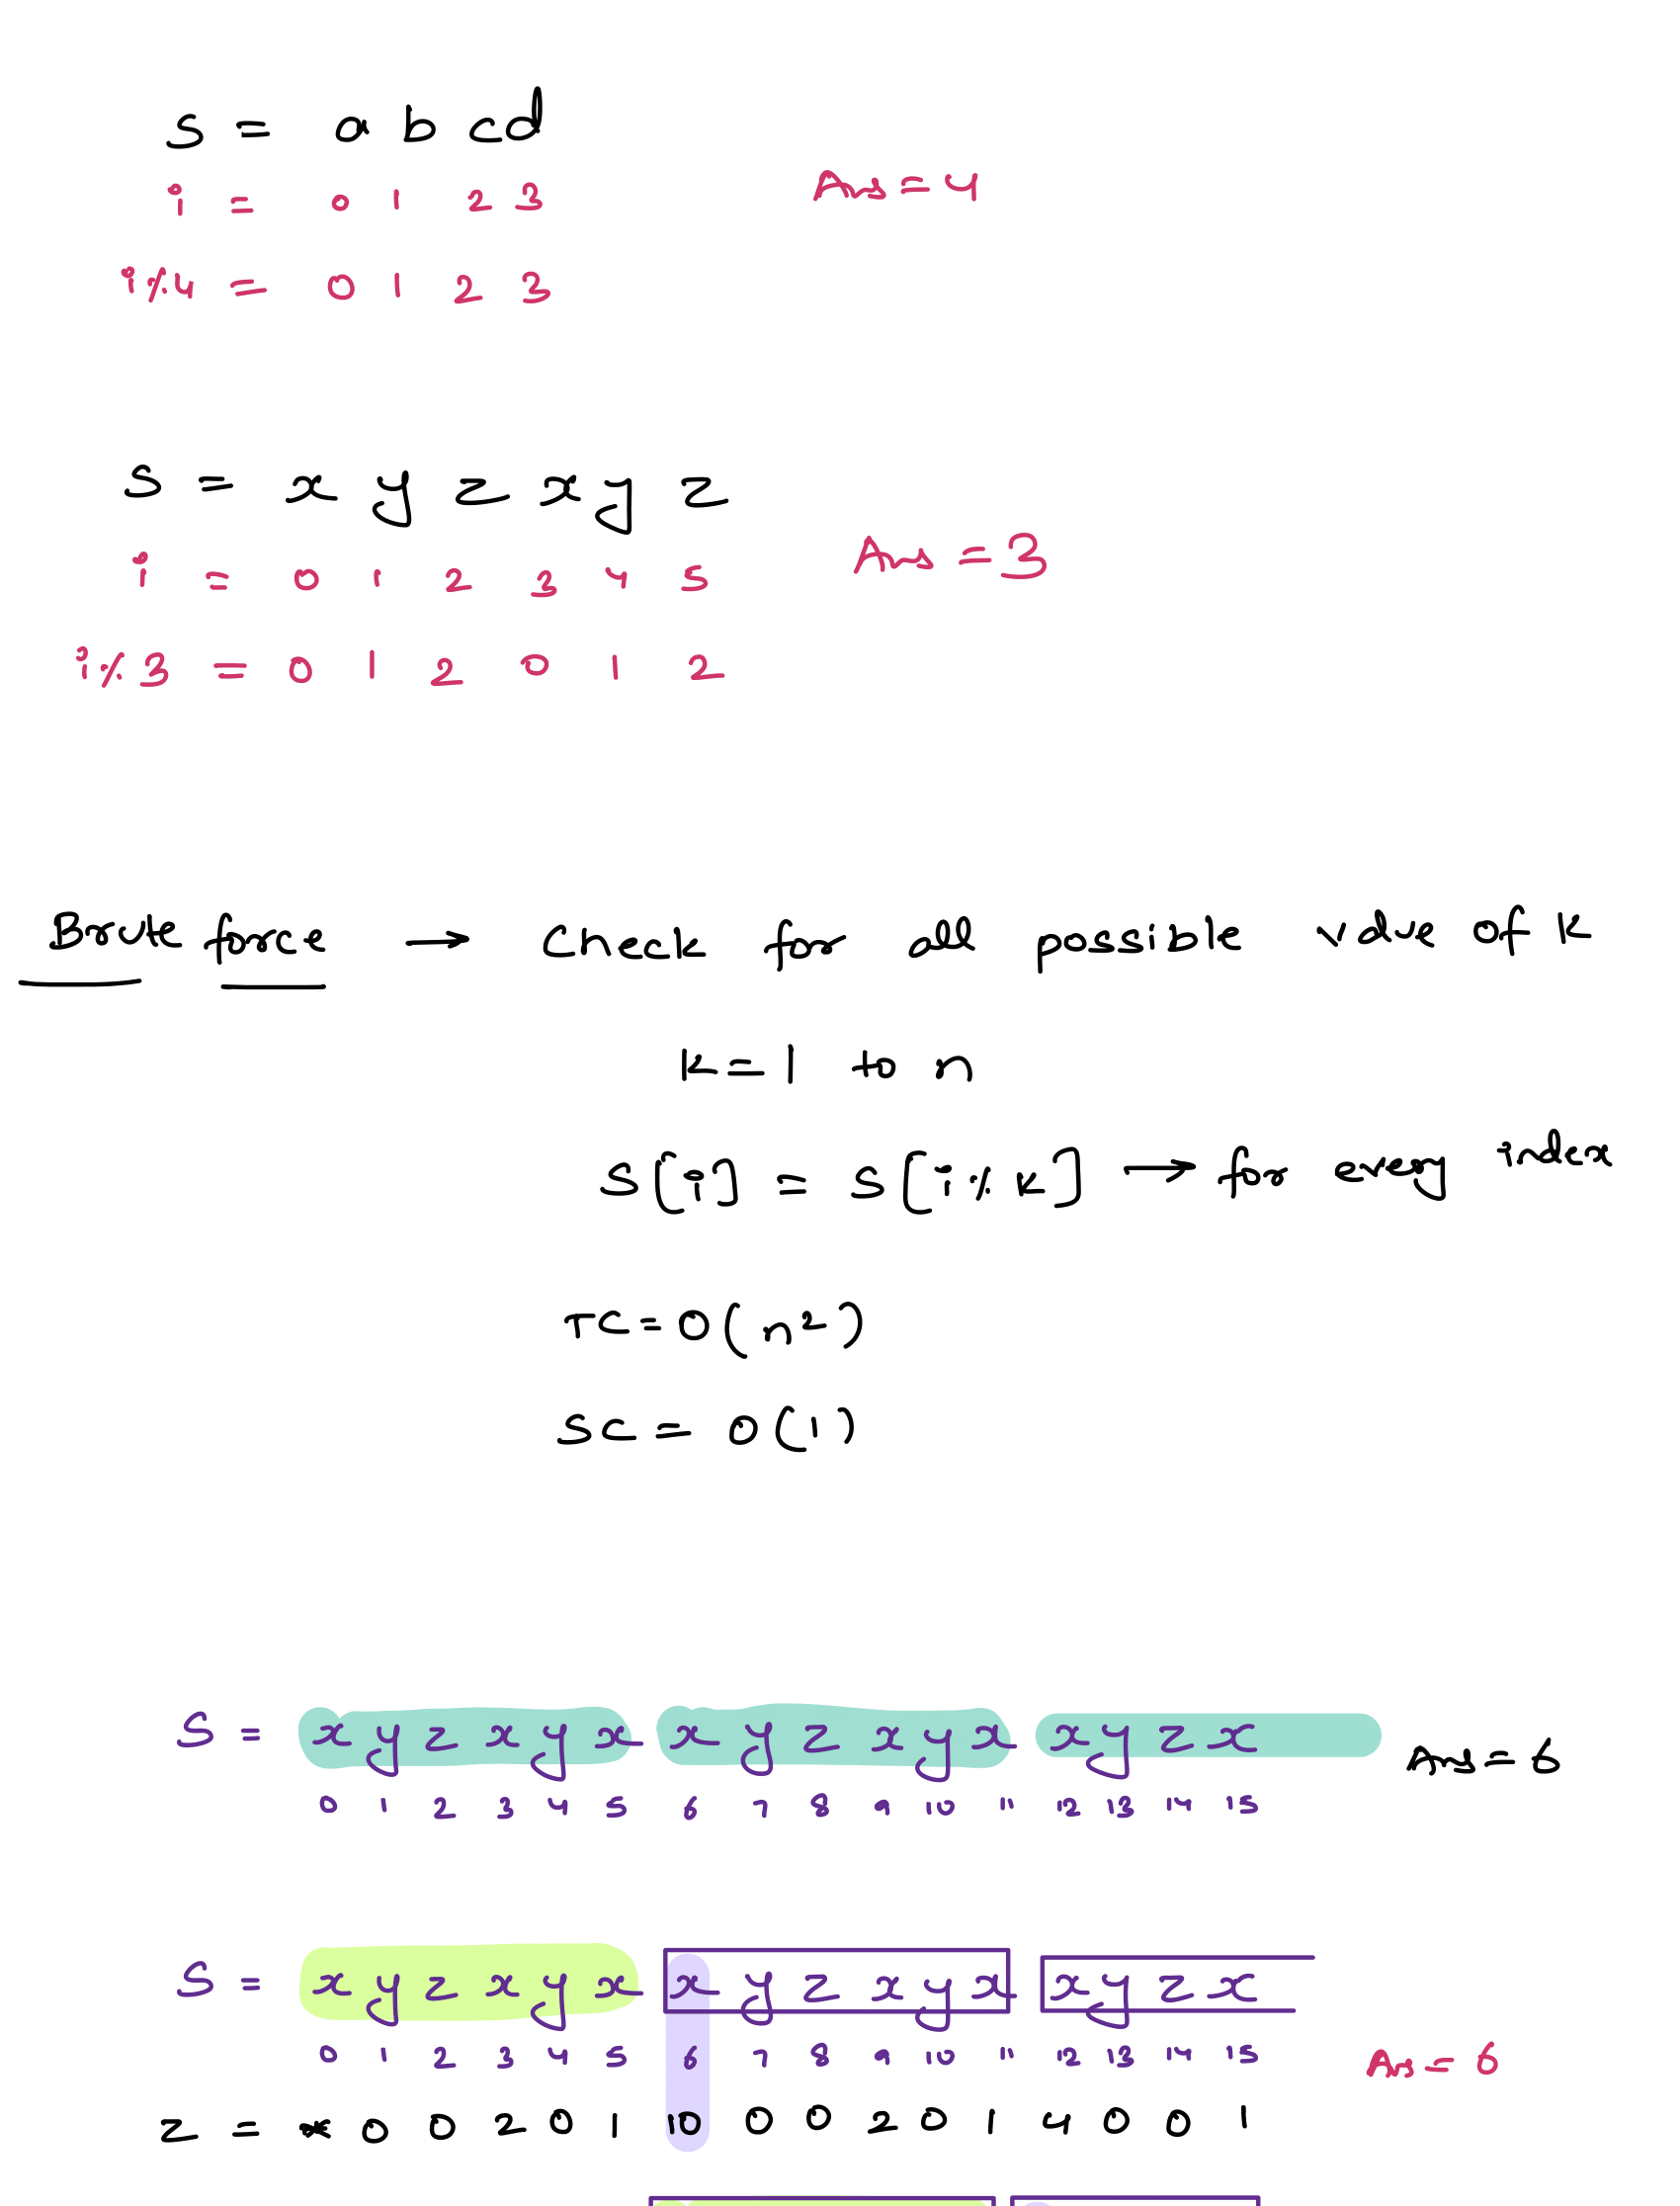 S = a b c d
i = 0 1 2 3
Ans = 4
i%4 = 0 1 2 3
S = x y z x y z
i = 0 1 2 3 4 5
Ans = 3
i%3 = 0 1 2 0 1 2
Brute force → Check for all possible value of k
k = 1 to n
S[i] = S[i%k] → for every index
TC = O(n²)
SC = O(1)
S = x y z x y x x y z x y x x y z x
Ans = 6
0 1 2 3 4 5 6 7 8 9 10 11 12 13 14 15
S = x y z x y x x y z x y x x y z x
0 1 2 3 4 5 6 7 8 9 10 11 12 13 14 15
Ans = 6
Z = * 0 0 2 0 1 10 0 0 2 0 1 4 0 0 1